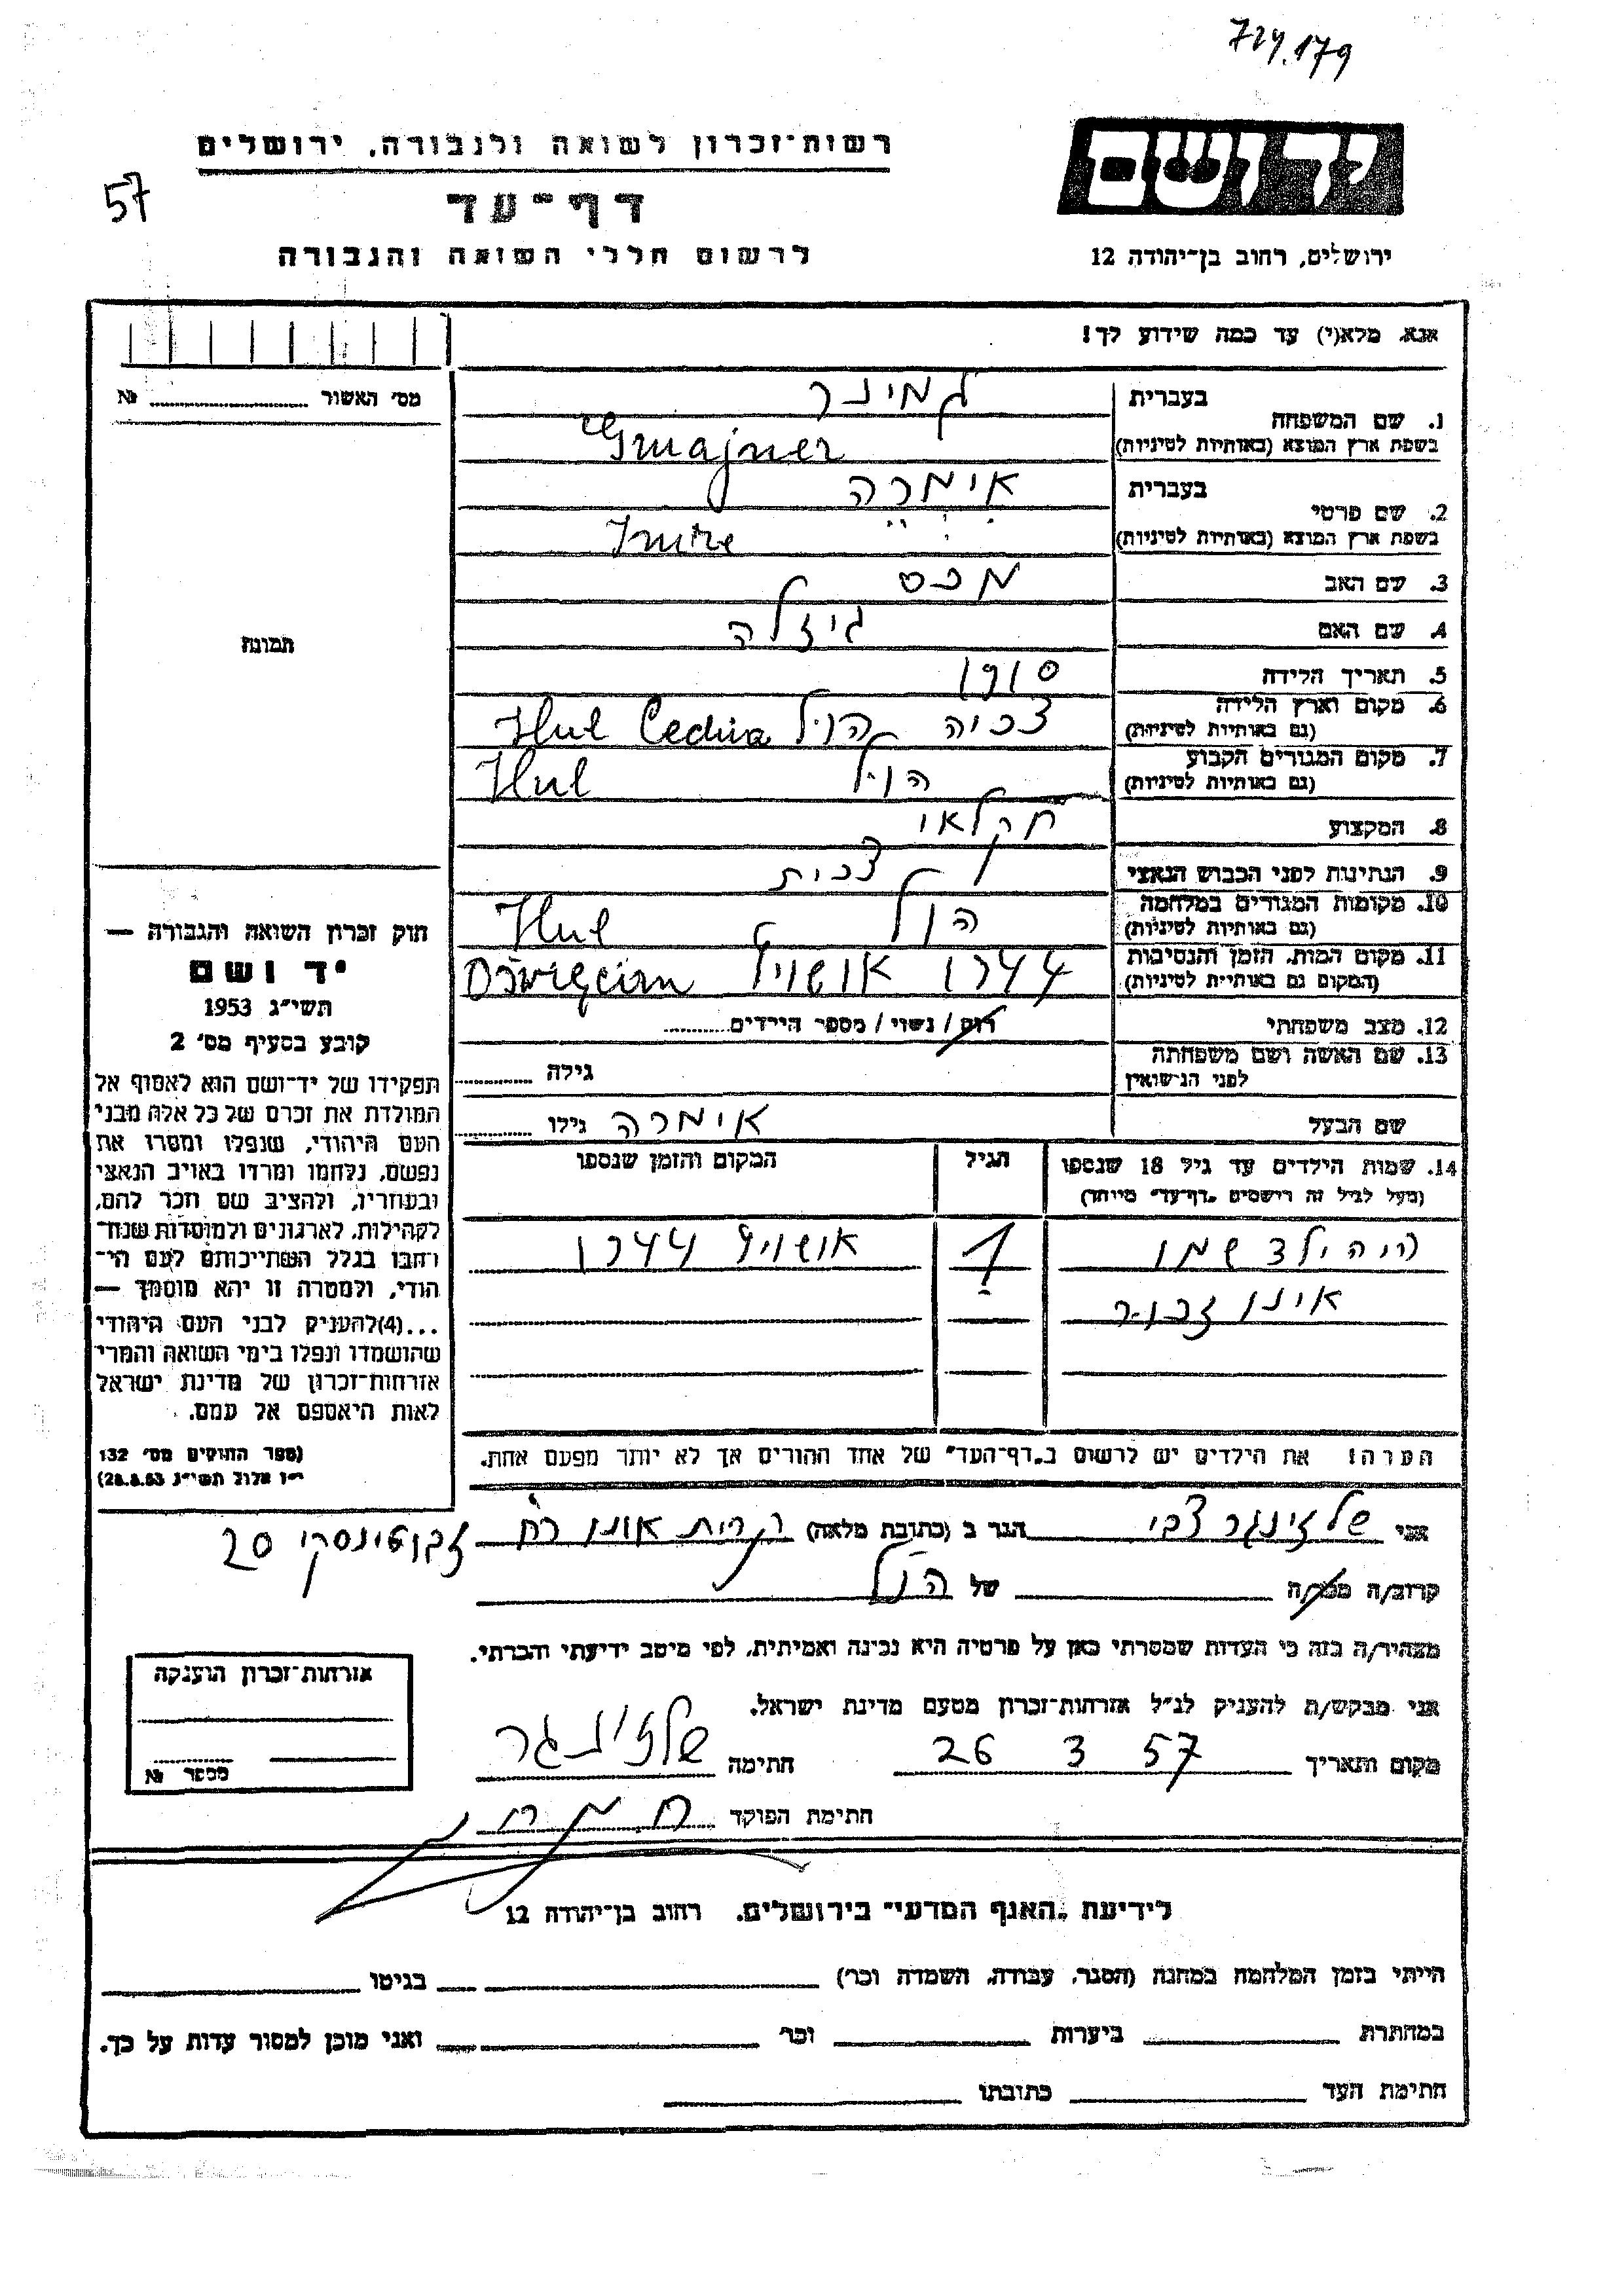 724.179
יד ושם
רשות־זכרון לשואה ולגבורה, ירושלים
57
דף־עד
לרשום חללי השואה והגבורה
ירושלים, רחוב בן־יהודה 12
אנא, מלא(י) עד כמה שידוע לך!
מס׳ האשור № 
1. שם המשפחה
בעברית גמינר
בשפת ארץ המוצא (באותיות לטיניות) Gmajner
2. שם פרטי
בעברית אימרה
בשפת ארץ המוצא (באותיות לטיניות) Imre
3. שם האב מכס
4. שם האם גיזלה
תמונה
5. תאריך הלידה 1910
6. מקום וארץ הלידה (גם באותיות לטיניות) צכיה הול Hul Cechia
7. מקום המגורים הקבוע (גם באותיות לטיניות) הול Hul
8. המקצוע חקלאי
9. הנתינות לפני הכבוש הנאצי צכית
10. מקומות המגורים במלחמה (גם באותיות לטיניות) הול Hul
11. מקום המות, הזמן והנסיבות (המקום גם באותיות לטיניות) 1944 אושויץ
12. מצב משפחתי רוק / נשוי / מספר הילדים
13. שם האשה ושם משפחתה לפני הנישואין גילה
שם הבעל אימרה גילו
14. שמות הילדים עד גיל 18 שנספו הגיל המקום והזמן שנספו
(מעל לגיל זה רושמים „דף־עד״ מיוחד)
היה ילד שמו 1 אושויץ 1944
אינו זכור
הערה! את הילדים יש לרשום ב„דף־העד״ של אחד ההורים אך לא יותר מפעם אחת.
חוק זכרון השואה והגבורה —
יד ושם
תשי״ג 1953
קובע בסעיף מס׳ 2
תפקידו של יד־ושם הוא לאסוף אל
המולדת את זכרם של כל אלה מבני
העם היהודי, שנפלו ומסרו את
נפשם, נלחמו ומרדו באויב הנאצי
ובעוזריו, ולהציב שם וזכר להם,
לקהילות, לארגונים ולמוסדות שנח־
רבו בגלל השתייכותם לעם הי־
הודי, ולמטרה זו יהא מוסמך —
...(4)להעניק לבני העם היהודי
שהושמדו ונפלו בימי השואה והמרי
אזרחות־זכרון של מדינת ישראל
לאות היאספם אל עמם.
(ספר החוקים מס׳ 132
י״ז אלול תשי״ג 28.8.53)
אני שלזינגר צבי הגר ב (כתובת מלאה) קרית אונו רח׳ זבוטינסקי 20
קרוב/ה מכר/ה של הול
מצהיר/ה בזה כי העדות שמסרתי כאן על פרטיה היא נכונה ואמיתית, לפי מיטב ידיעתי והכרתי.
אני מבקש/ת להעניק לנ״ל אזרחות־זכרון מטעם מדינת ישראל.
מקום ותאריך 26 3 57 חתימה שלזינגר
חתימת הפוקד
אזרחות־זכרון הוענקה
מספר №
לידיעת „האגף המדעי״ בירושלים, רחוב בן־יהודה 12
הייתי בזמן המלחמה במחנה (הסגר, עבודה, השמדה וכו׳) בגיטו
במחתרת ביערות וכו׳ ואני מוכן למסור עדות על כך.
חתימת העד כתובתו